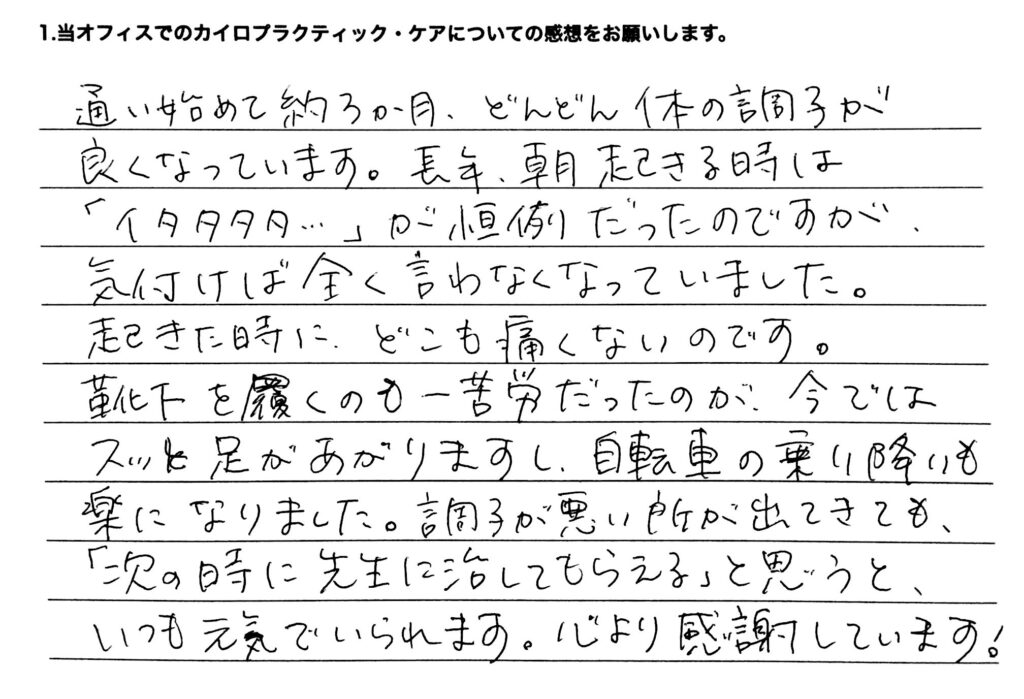 1.当オフィスでのカイロプラクティック・ケアについての感想をお願いします。
通い始めて約3か月、どんどん体の調子が
良くなっています。長年、朝起きる時は
「イタタタタ…」が恒例だったのですが、
気付けば全く言わなくなっていました。
起きた時に、どこも痛くないのです。
靴下を履くのも一苦労だったのが、今では
スッと足があがりますし、自転車の乗り降りも
楽になりました。調子が悪い所が出てきても、
「次の時に先生に治してもらえる」と思うと、
いつも元気でいられます。心より感謝しています!